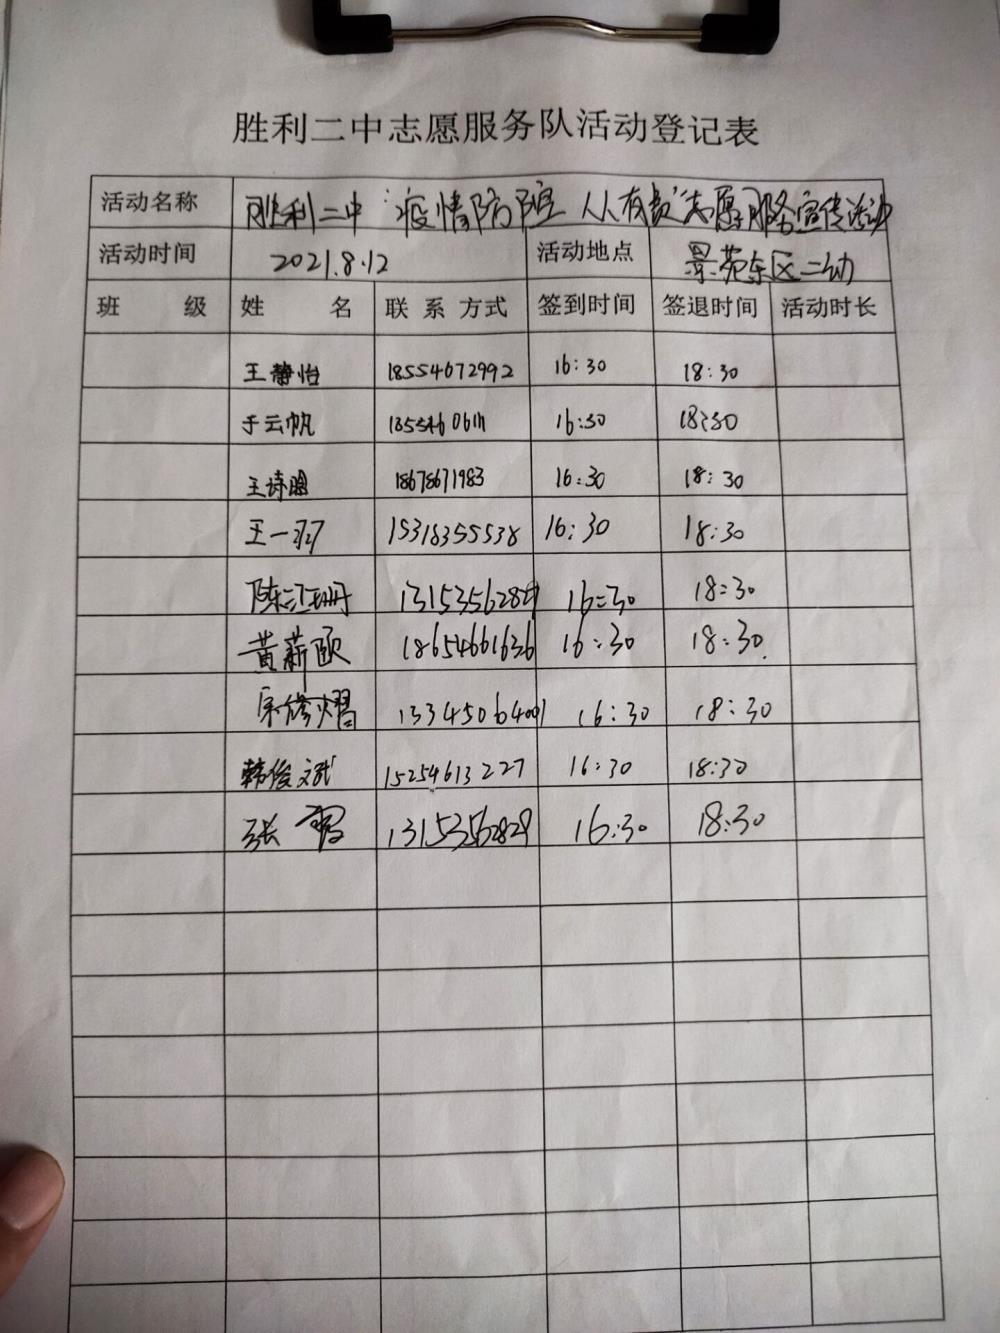 胜利二中志愿服务队活动登记表
活动名称 胜利二中"疫情防控 人人有责"志愿服务宣传活动
活动时间 2021.8.12 活动地点 景苑东区二幼
班 级 姓 名 联 系 方式 签到时间 签退时间 活动时长
王静怡 18554672992 16:30 18:30
于云帆 16:30 18:30
王诗 18678671983 16:30 18:30
王一 15318355538 16:30 18:30
陈江珊 13153562829 16:30 18:30
黄薪颐 18654661636 16:30 18:30
宗修熠 13345064001 16:30 18:30
韩俊斌 15254613227 16:30 18:30
张 13153562829 16:30 18:30